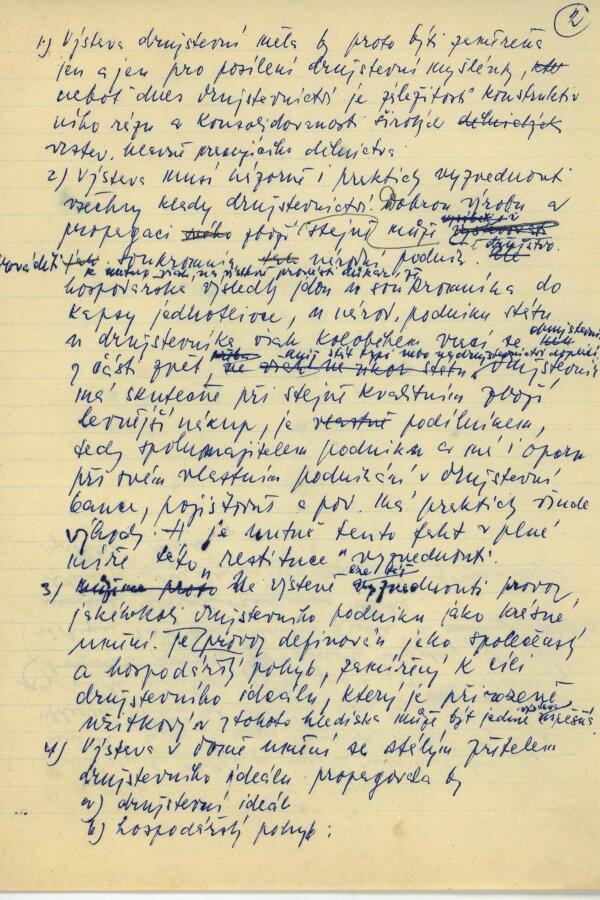 2
1.) Výstava družstevní měla by proto býti zaměřena
jen a jen pro posílení družstevní myšlénky,
neboť dnes družstevnictví je záležitostí konstruktiv
ního rázu a konsolidovanosti širokých dělnických
vrstev, hlavně pracujícího dělnictva
2) Výstava musí názorně i prakticky vyzvednouti
všechny klady družstevnictví. Dobrou výrobu a
propagaci zboží stejně může
soukromník národní podnik. družstvo.
K nutno však na jistém průkazu
hospodářské výsledky jdou u soukromníka do
kapsy jednotlivce, u národ. podniku státu
u družstevníka však koloběhem vrací se družstevní
z části zpět, družstevník
má skutečně při stejně kvalitním zboží
levnější nákup, je vlastně podílníkem,
tedy spolumajitelem podniku a má i oporu
při svém vlastním podnikání v družstevní
bance, pojišťovně a pod. má prakticky všude
výhody. Je nutné tento fakt v plné
míře této „restituce" vyzvednouti.
3) proto Na výstavě vyzvednouti provoz
jakéhokoli družstevního podniku jako krásné
umění. Je provoz definován, jako společenský
a hospodářský pohyb, zaměřený k cíli
družstevního ideálu, který je přirozeně
užitkový a z tohoto hlediska může být jedině výstava úspěšná.
4) Výstava v domě umění se stálým zřetelem
družstevního ideálu propagovala by
a) družstevní ideál
b) hospodářský pohyb: